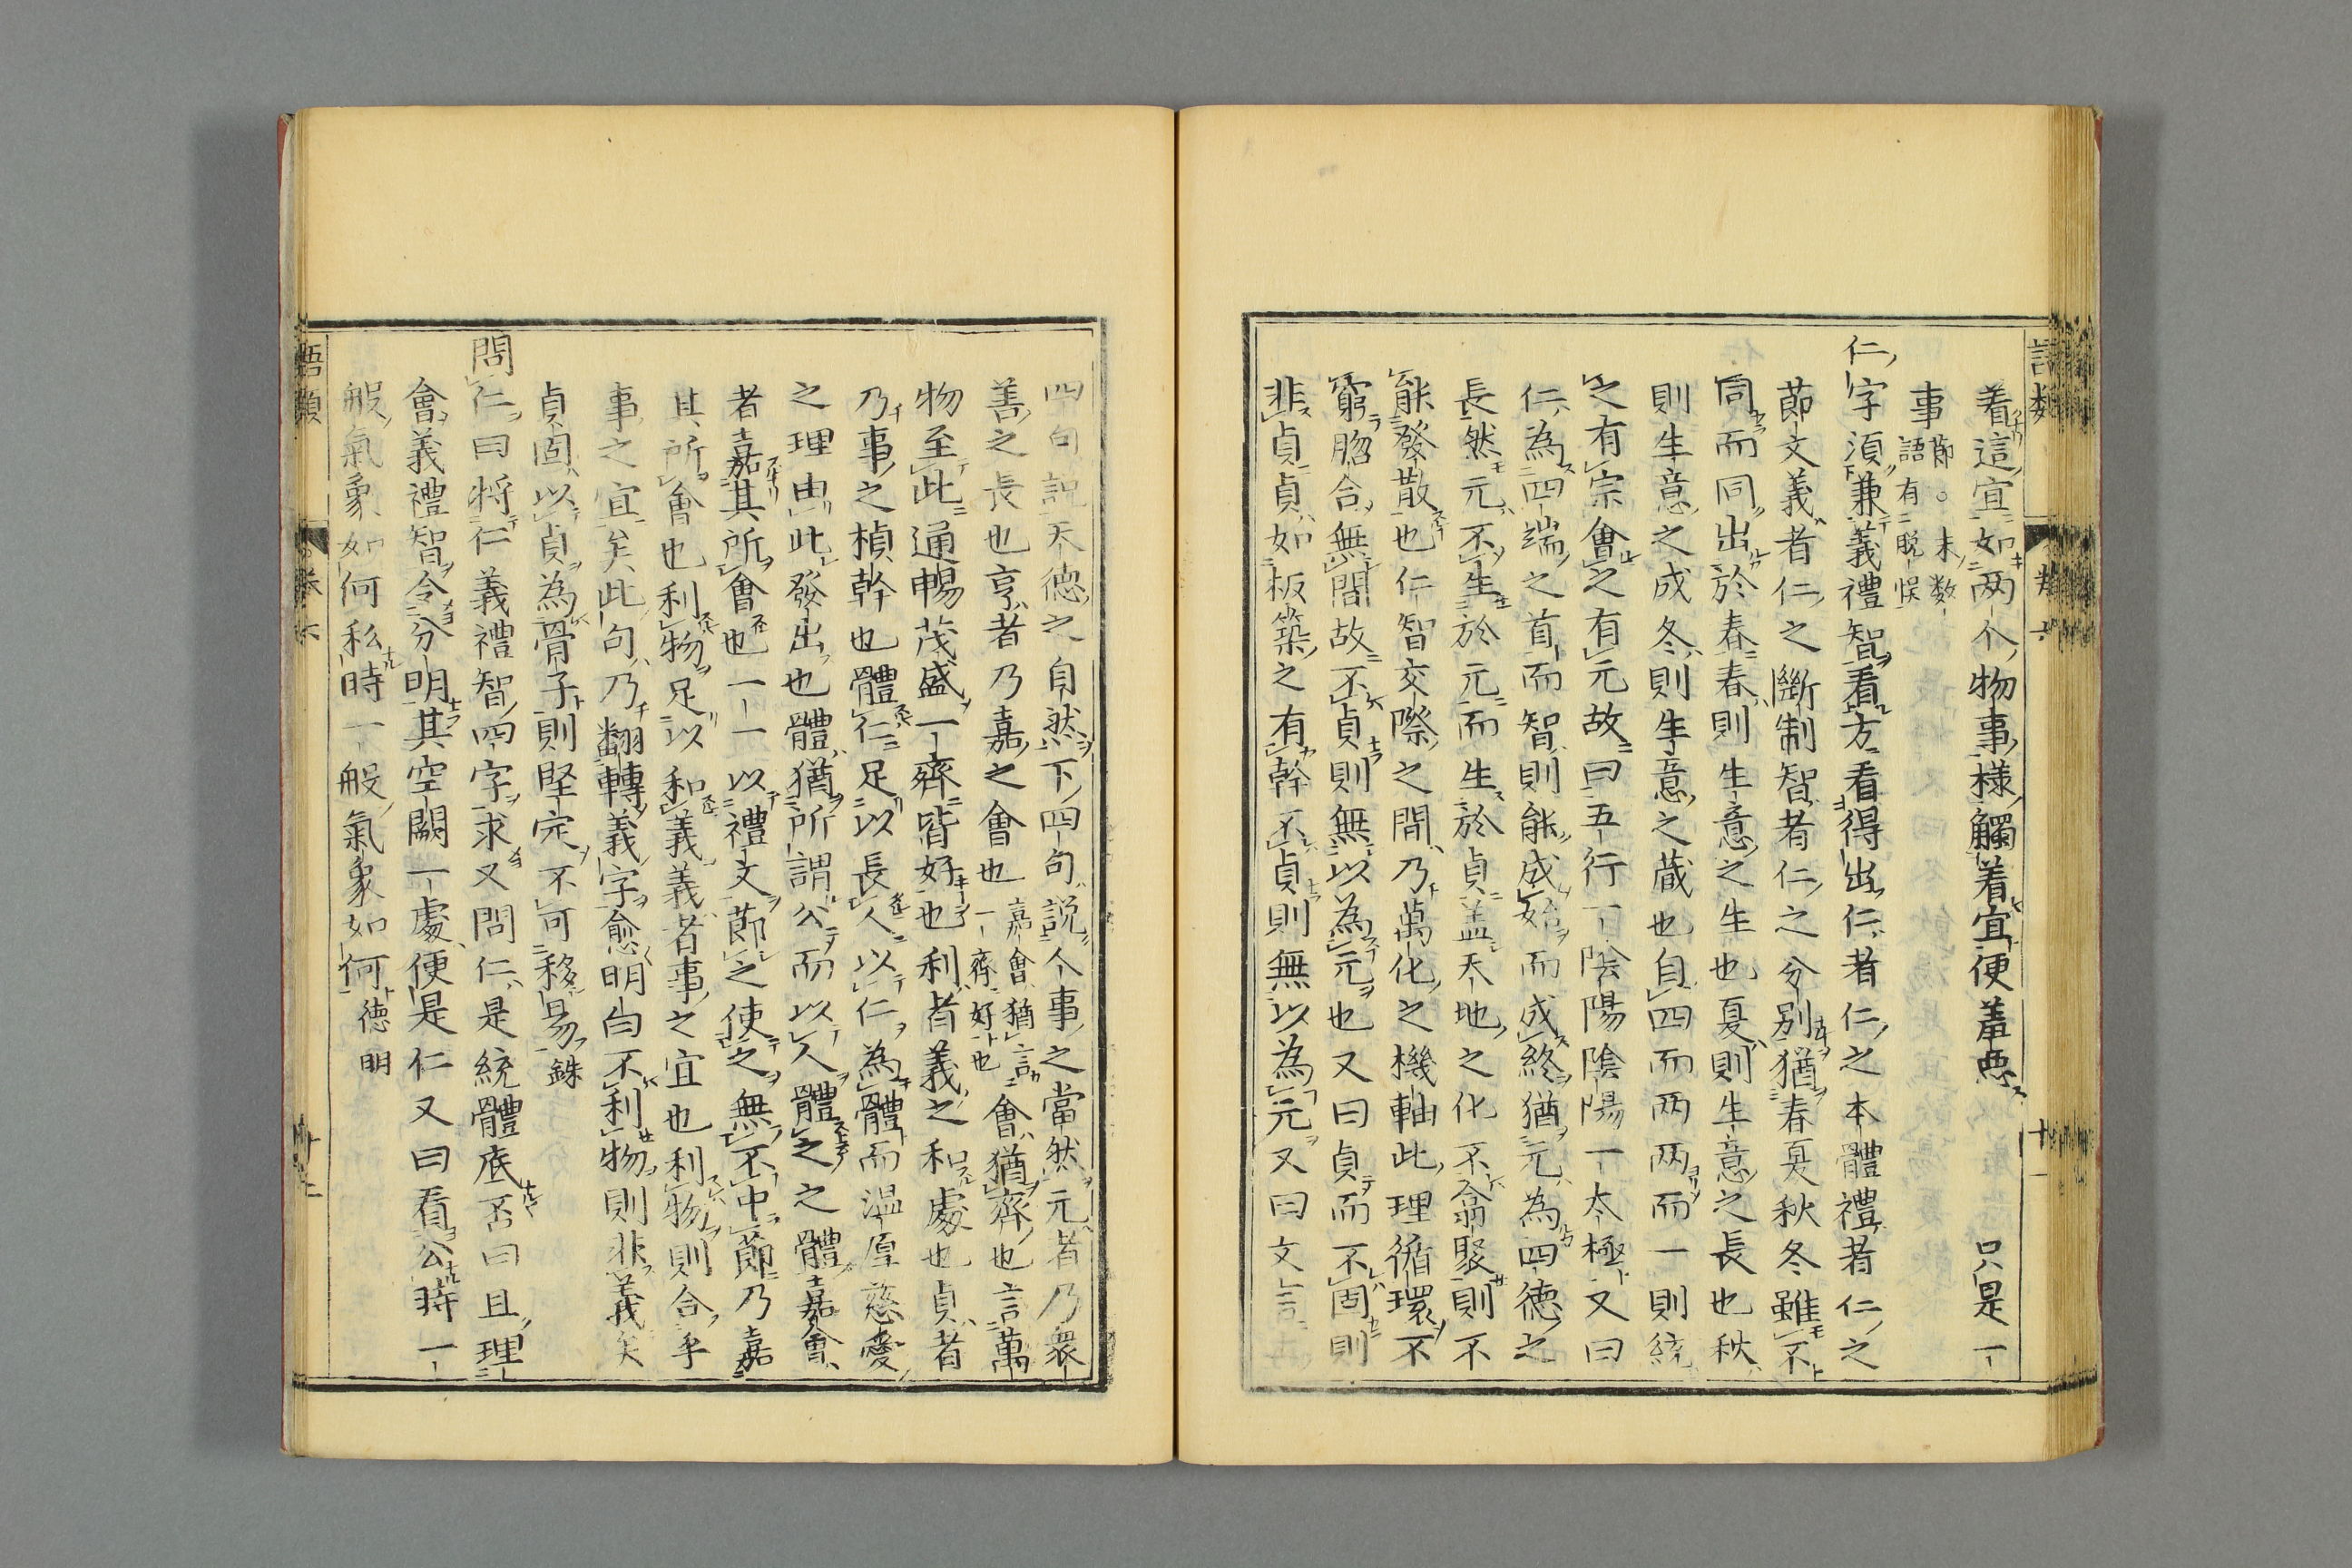 着這宜如兩个物事様觸着宜便羞惡　只是一
事節○末数語有脱悮
仁字須兼義禮智看方看得出仁者仁之本體禮者仁之
節文義者仁之斷制智者仁之分別猶春夏秋冬雖不
同而同出於春春則生意之生也夏則生意之長也秋
則生意之成冬則生意之蔵也自四而兩兩而一則統
之有宗會之有元故曰五行一陰陽陰陽一太極又曰
仁為四端之首而智則能成始而成終猶元為四德之
長然元不生於元而生於貞盖天地之化不翕聚則不
能發散也仁智交際之間乃萬化之機軸此理循環不
窮脗合無間故不貞則無以為元也又曰貞而不固則
非貞貞如板築之有幹不貞則無以為元又曰文言
四句説天德之自然下四句説人事之當然元者乃衆
善之長也亨者乃嘉之會也嘉會猶言一齊好也會猶齊也言萬
物至此通暢茂盛一齊皆好也利者義之和處也貞者
乃事之楨幹也體仁足以長人以仁為體而温厚慈愛
之理由此發出也體猶所謂公而以人體之之體嘉會
者嘉其所會也一一以禮文節之使之無不中節乃嘉
其所會也利物足以和義義者事之宜也利物則合乎
事之宜矣此句乃翻轉義字愈明白不利物則非義矣
貞固以貞為骨子則堅定不可移易銖
問仁曰将仁義禮智四字求又問仁是統體底否曰且理
會義禮智令分明其空闕一處便是仁又曰看公時一
般氣象如何私時一般氣象如何德明
語類　卷六　十一
語類　卷六　十二